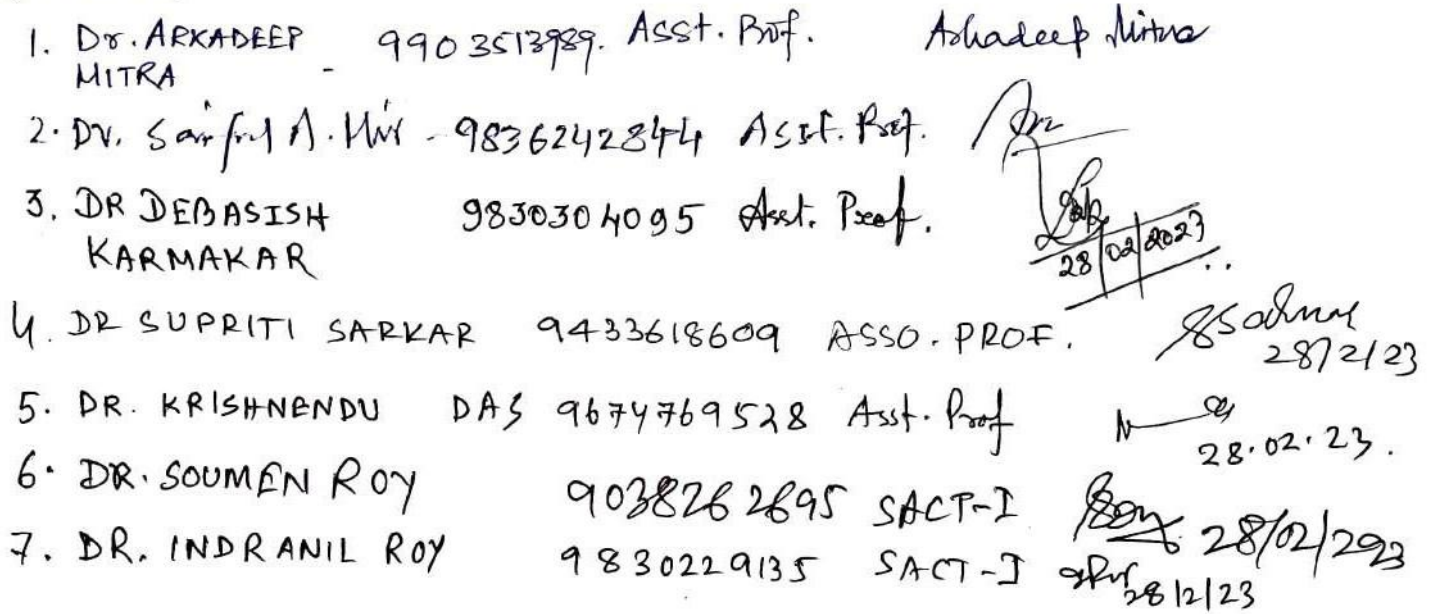 1. Dr. ARKADEEP - 9903513989. Asst. Prof. Arkadeep Mitra
MITRA
2. Dr. Saiful A. Mir - 9836242844 Asst. Prof.
3. DR DEBASISH 9830304095 Asst. Prof.
KARMAKAR
28/02/2023
4. DR SUPRITI SARKAR 9433618609 ASSO. PROF. SSarkar
28/2/23
5. DR. KRISHNENDU DAS 9674769528 Asst. Prof
28.02.23.
6. DR. SOUMEN ROY 9038262695 SACT-I Roy 28/02/2923
7. DR. INDRANIL ROY 9830229135 SACT-I
28/2/23